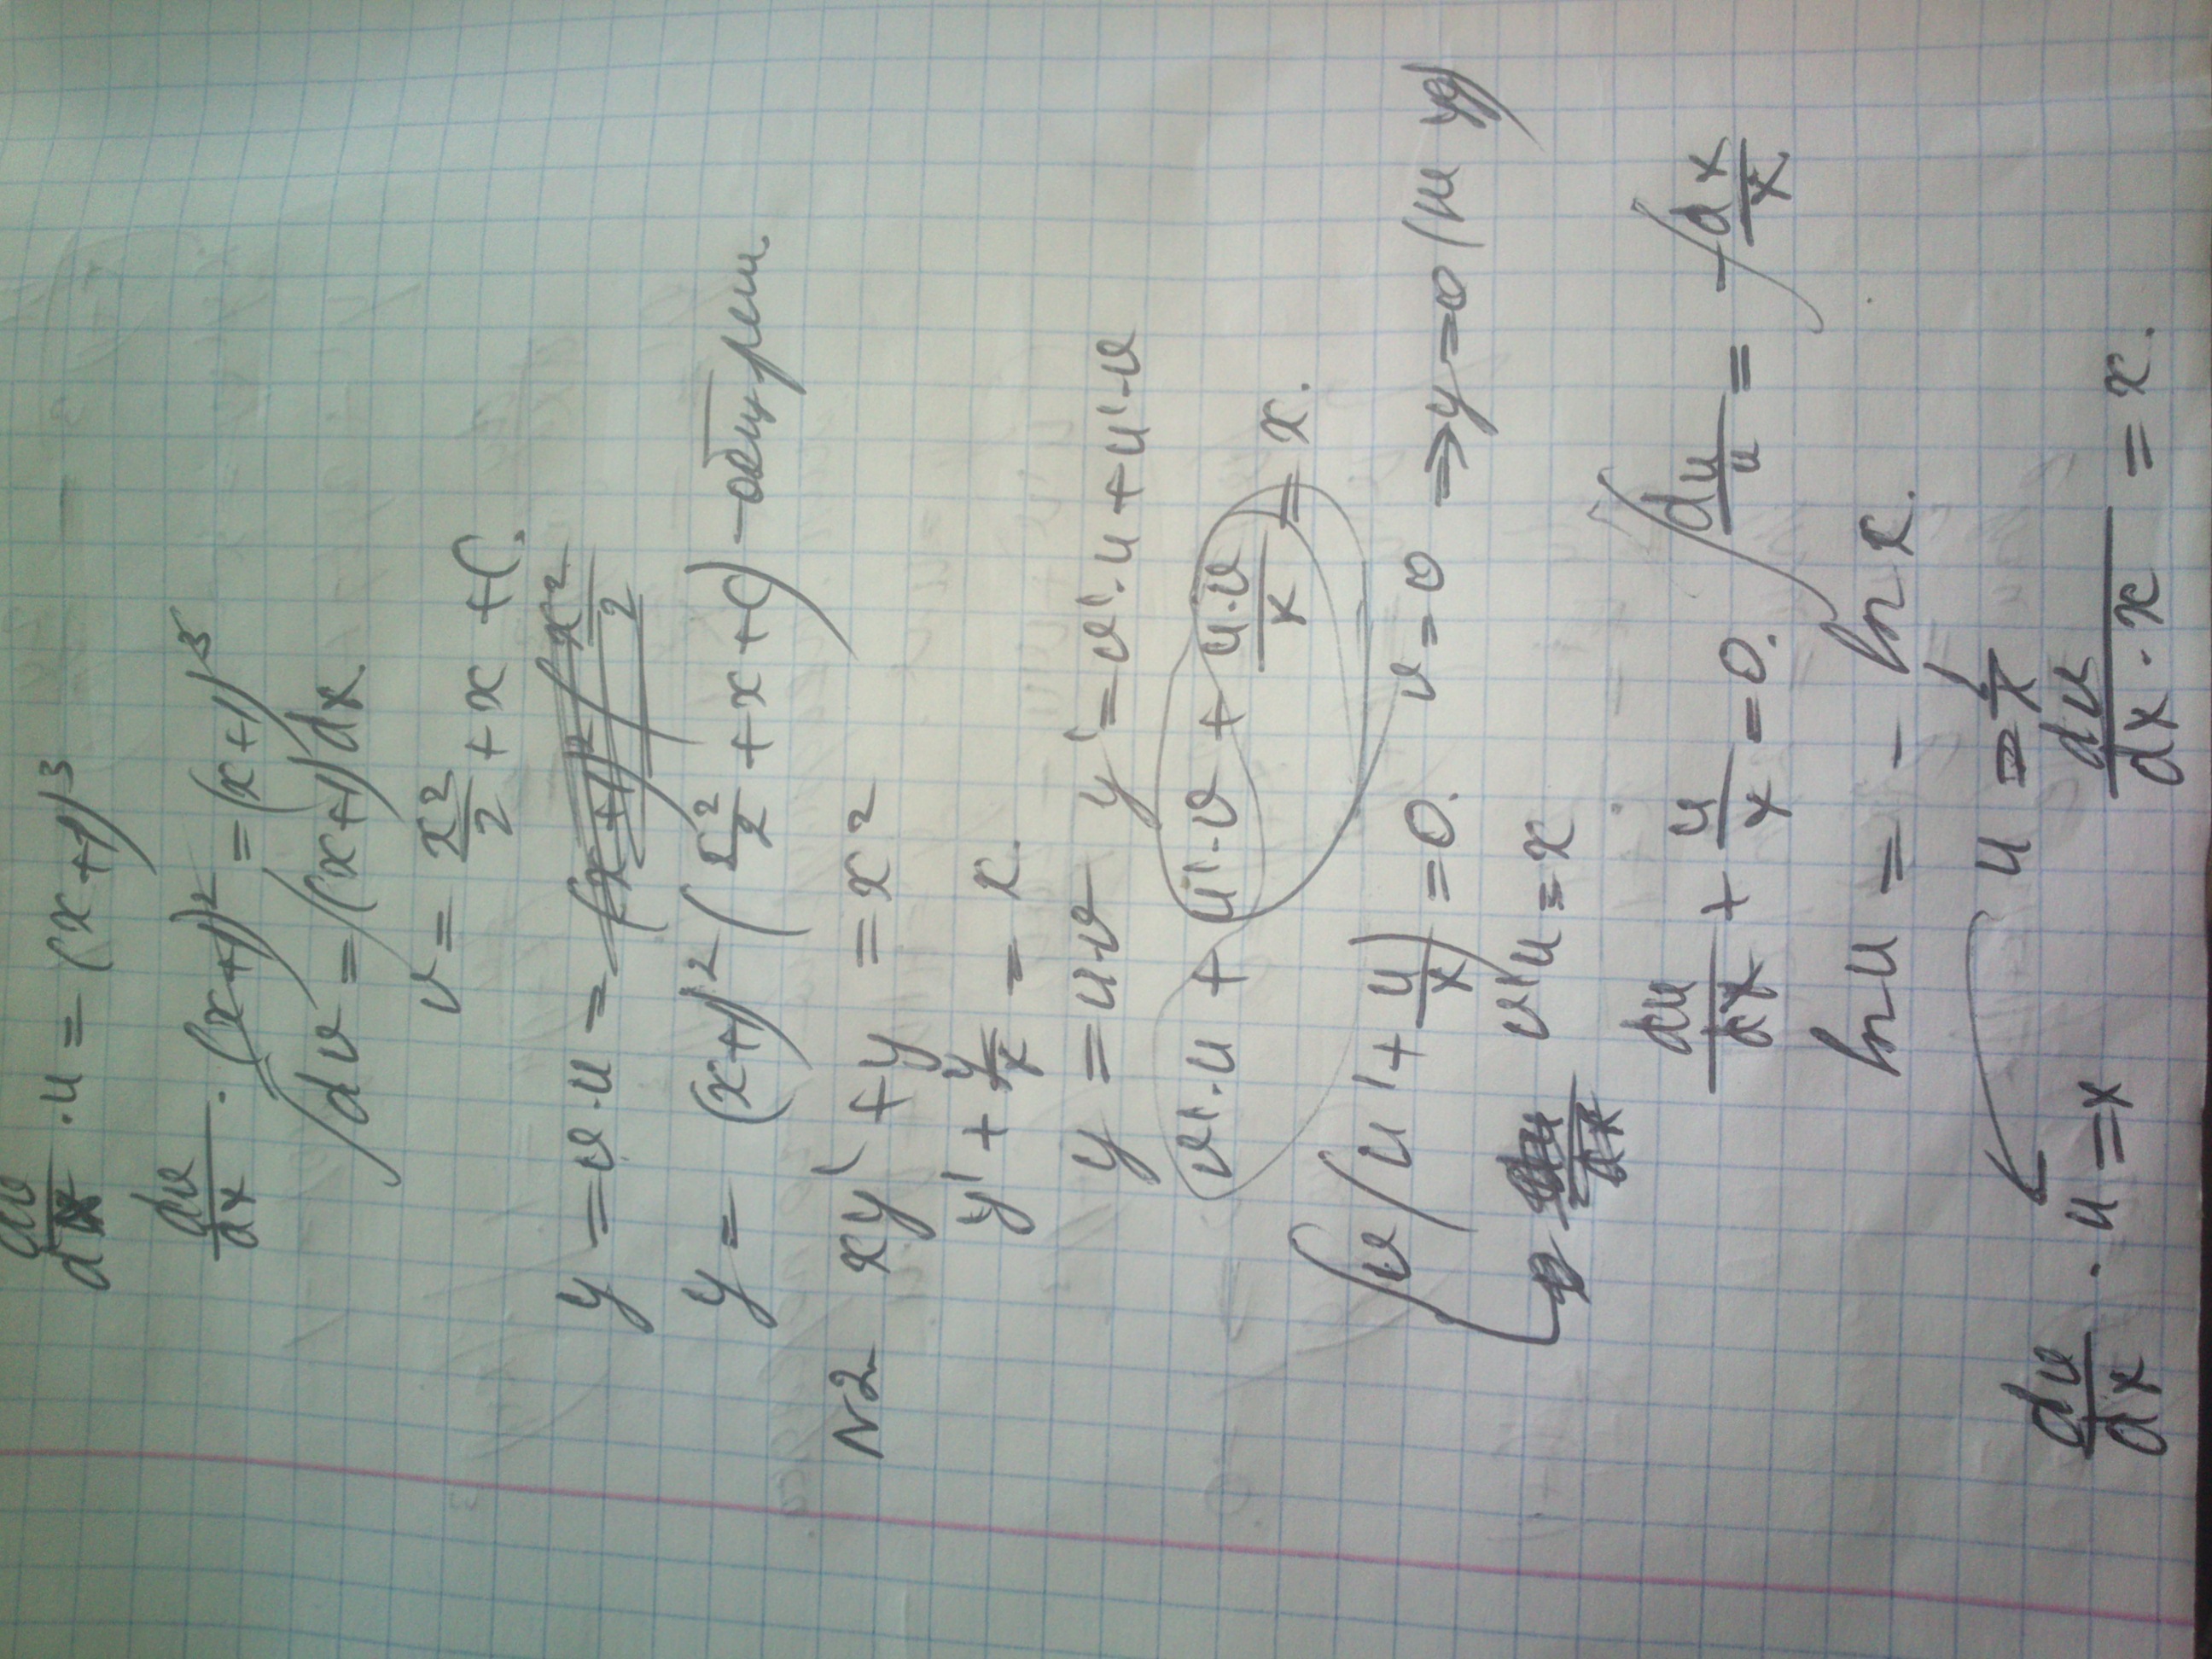 dv/dx · u = (x+1)³
dv/dx · (x+1)² = (x+1)³
∫dv = ∫(x+1)dx.
v = x²/2 + x + C.
y = v·u =
y = (x+1)²(x²/2 + x + C) – общ реш.
N2 xy' + y = x²
y' + y/x = x.
y = u·v y' = v'·u + u'·v
v'·u + u'·v + u·v/x = x.
v(u' + u/x) = 0. v = 0 ⇒ y = 0
v'u = x
du/dx + u/x = 0. ∫du/u = -∫dx/x
ln u = - ln x.
u = 1/x
dv/dx · u = x dv/dx·x = x.